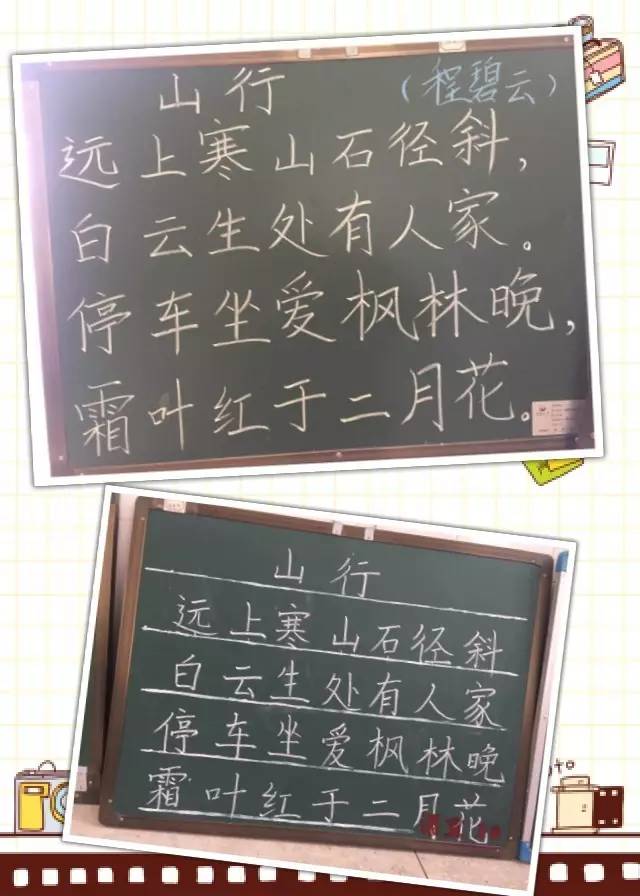 山行
（程碧云）
远上寒山石径斜，
白云生处有人家。
停车坐爱枫林晚，
霜叶红于二月花。
山行
远上寒山石径斜
白云生处有人家
停车坐爱枫林晚
霜叶红于二月花